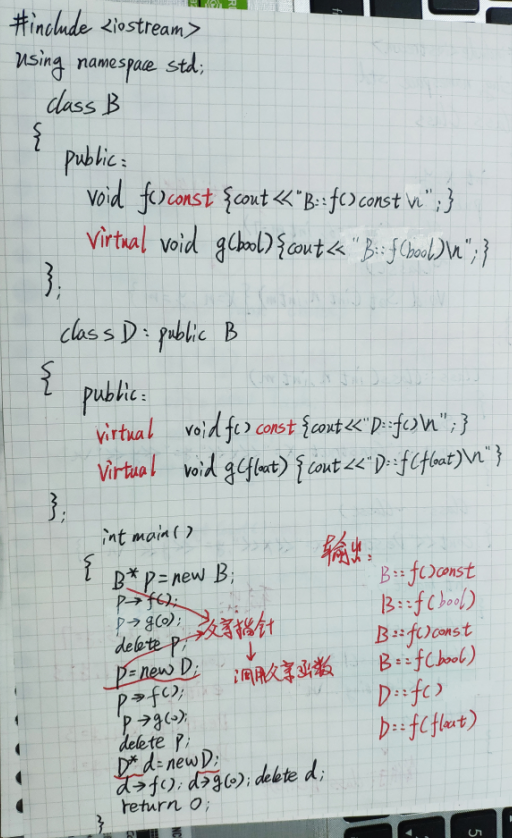 #include <iostream>
using namespace std;
class B
{
public:
void f()const {cout<<"B::f()const \n";}
virtual void g(bool){cout<<"B::f(bool)\n";}
};
class D: public B
{
public:
virtual void f() const {cout<<"D::f()\n";}
virtual void g(float) {cout<<"D::f(float)\n"}
};
int main()
{ B* p=new B;
p→f();
p→g(0);
delete p;
p=new D;
p→f();
p→g(0);
delete p;
D* d=new D;
d→f(); d→g(0); delete d;
return 0;
}
父亲指针
↓
调用父亲函数
输出:
B::f()const
B::f(bool)
B::f()const
B::f(bool)
D::f()
D::f(float)